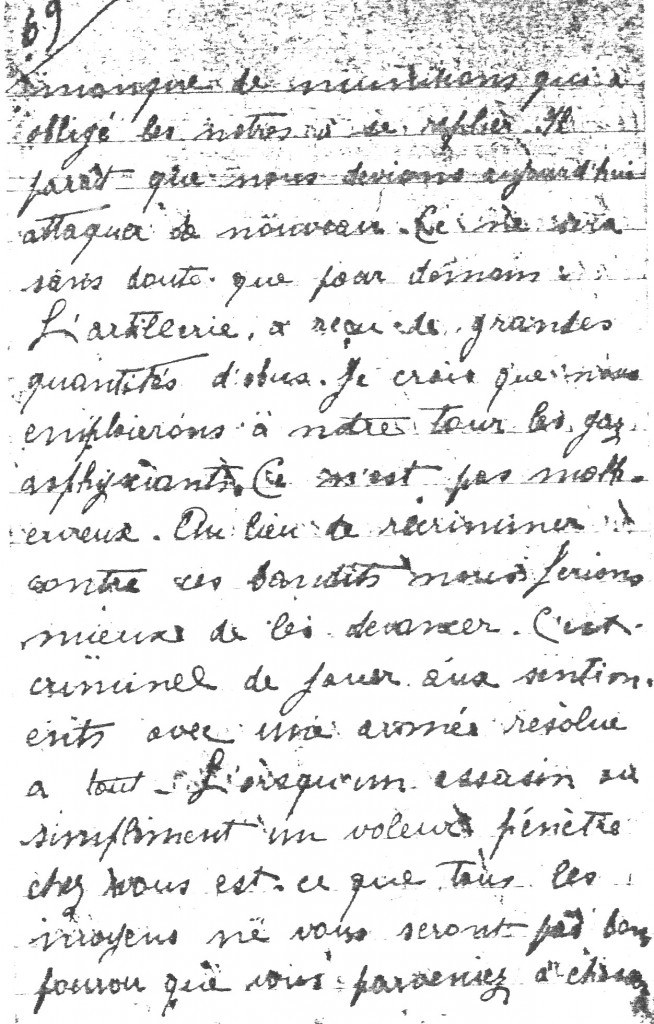 69
manque de munitions qui a
obligé les notres à se replier. Il
parait que nous devions aujourd'hui
attaquer de nouveau. Ce ne sera
sans doute que pour demain.
L'artillerie, a reçu de grandes
quantités d'obus. Je crois que nous
emploierons à notre tour les gaz
asphyxiants. Ce n'est pas malh-
eureux. Au lieu de récriminer
contre ces bandits nous ferions
mieux de les devancer. C'est
criminel de jouer aux sentim-
ents avec une armée résolue
a tout. Lorsqu'un assasin ou
simpliment un voleur pénètre
chez vous est-ce que tous les
moyens ne vous seront pas bon
pourvu que vous parveniez à